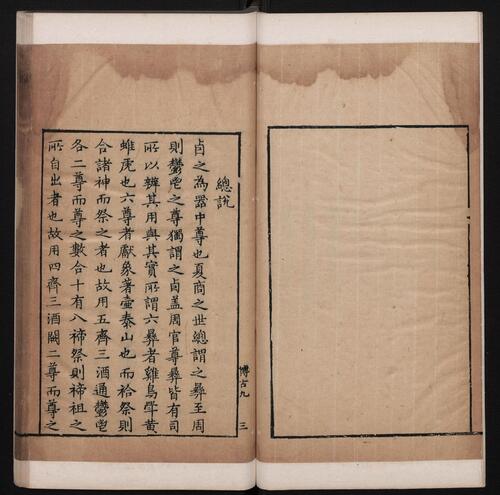 總說
卣之為器中尊也夏商之世總謂之彝至周
則鬱鬯之尊獨謂之卣蓋周官尊彝皆有司
所以辨其用與其實所謂六彝者雞鳥斝黃
蜼虎也六尊者獻象著壺泰山也而祫祭則
合諸神而祭之者也故用五齊三酒通鬱鬯
各二尊而尊之數合十有八禘祭則禘祖之
所自出者也故用四齊三酒闕二尊而尊之
博古九
三